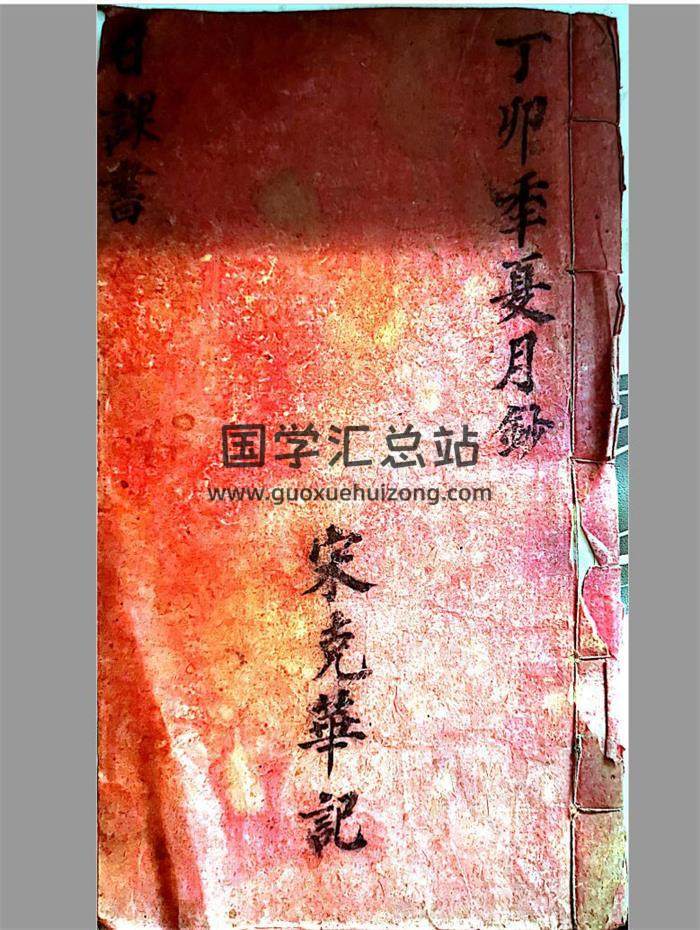 丁卯季夏月鈔
宋克華記
日課書
国学汇总站
www.guoxuehuizong.com